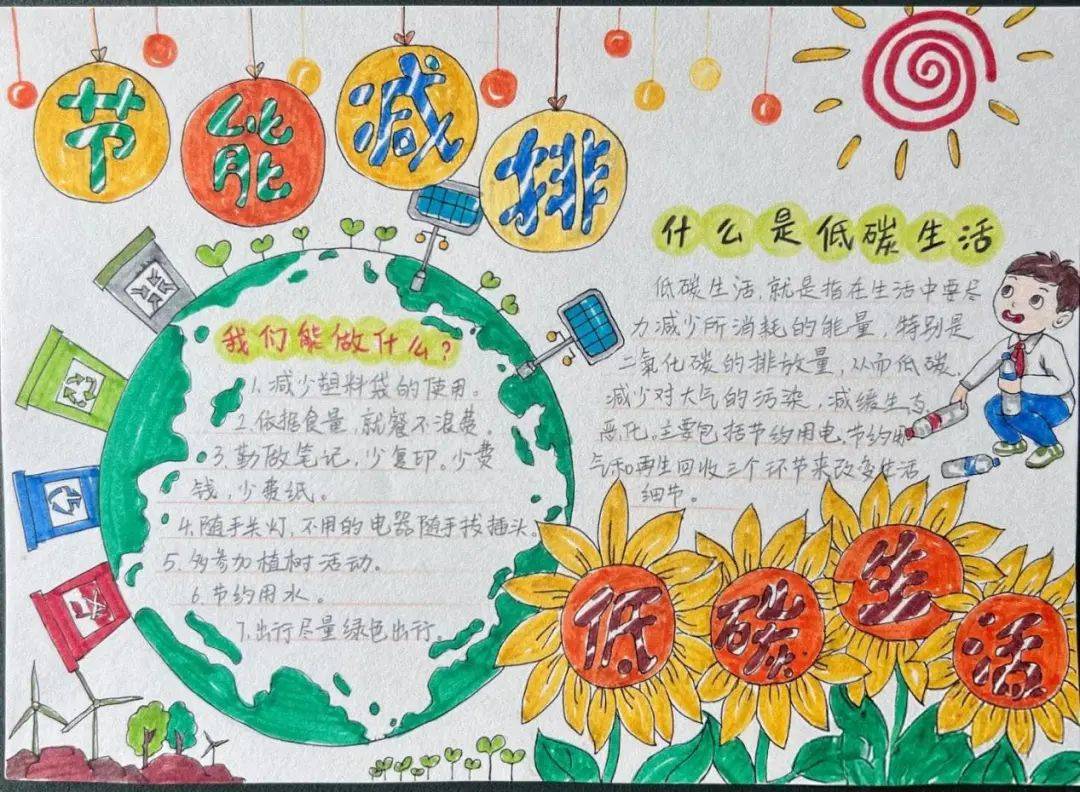 节能减排
什么是低碳生活
低碳生活，就是指在生活中要尽
力减少所消耗的能量，特别是
二氧化碳的排放量，从而低碳，
减少对大气的污染，减缓生态
恶化。主要包括节约用电，节约用
气和再生回收三个环节来改变生活
细节。
我们能做什么？
1.减少塑料袋的使用。
2.依据食量，就餐不浪费。
3.勤做笔记，少复印。少费
钱，少费纸。
4.随手关灯，不用的电器随手拔插头。
5.多参加植树活动。
6.节约用水。
7.出行尽量绿色出行。
低碳生活